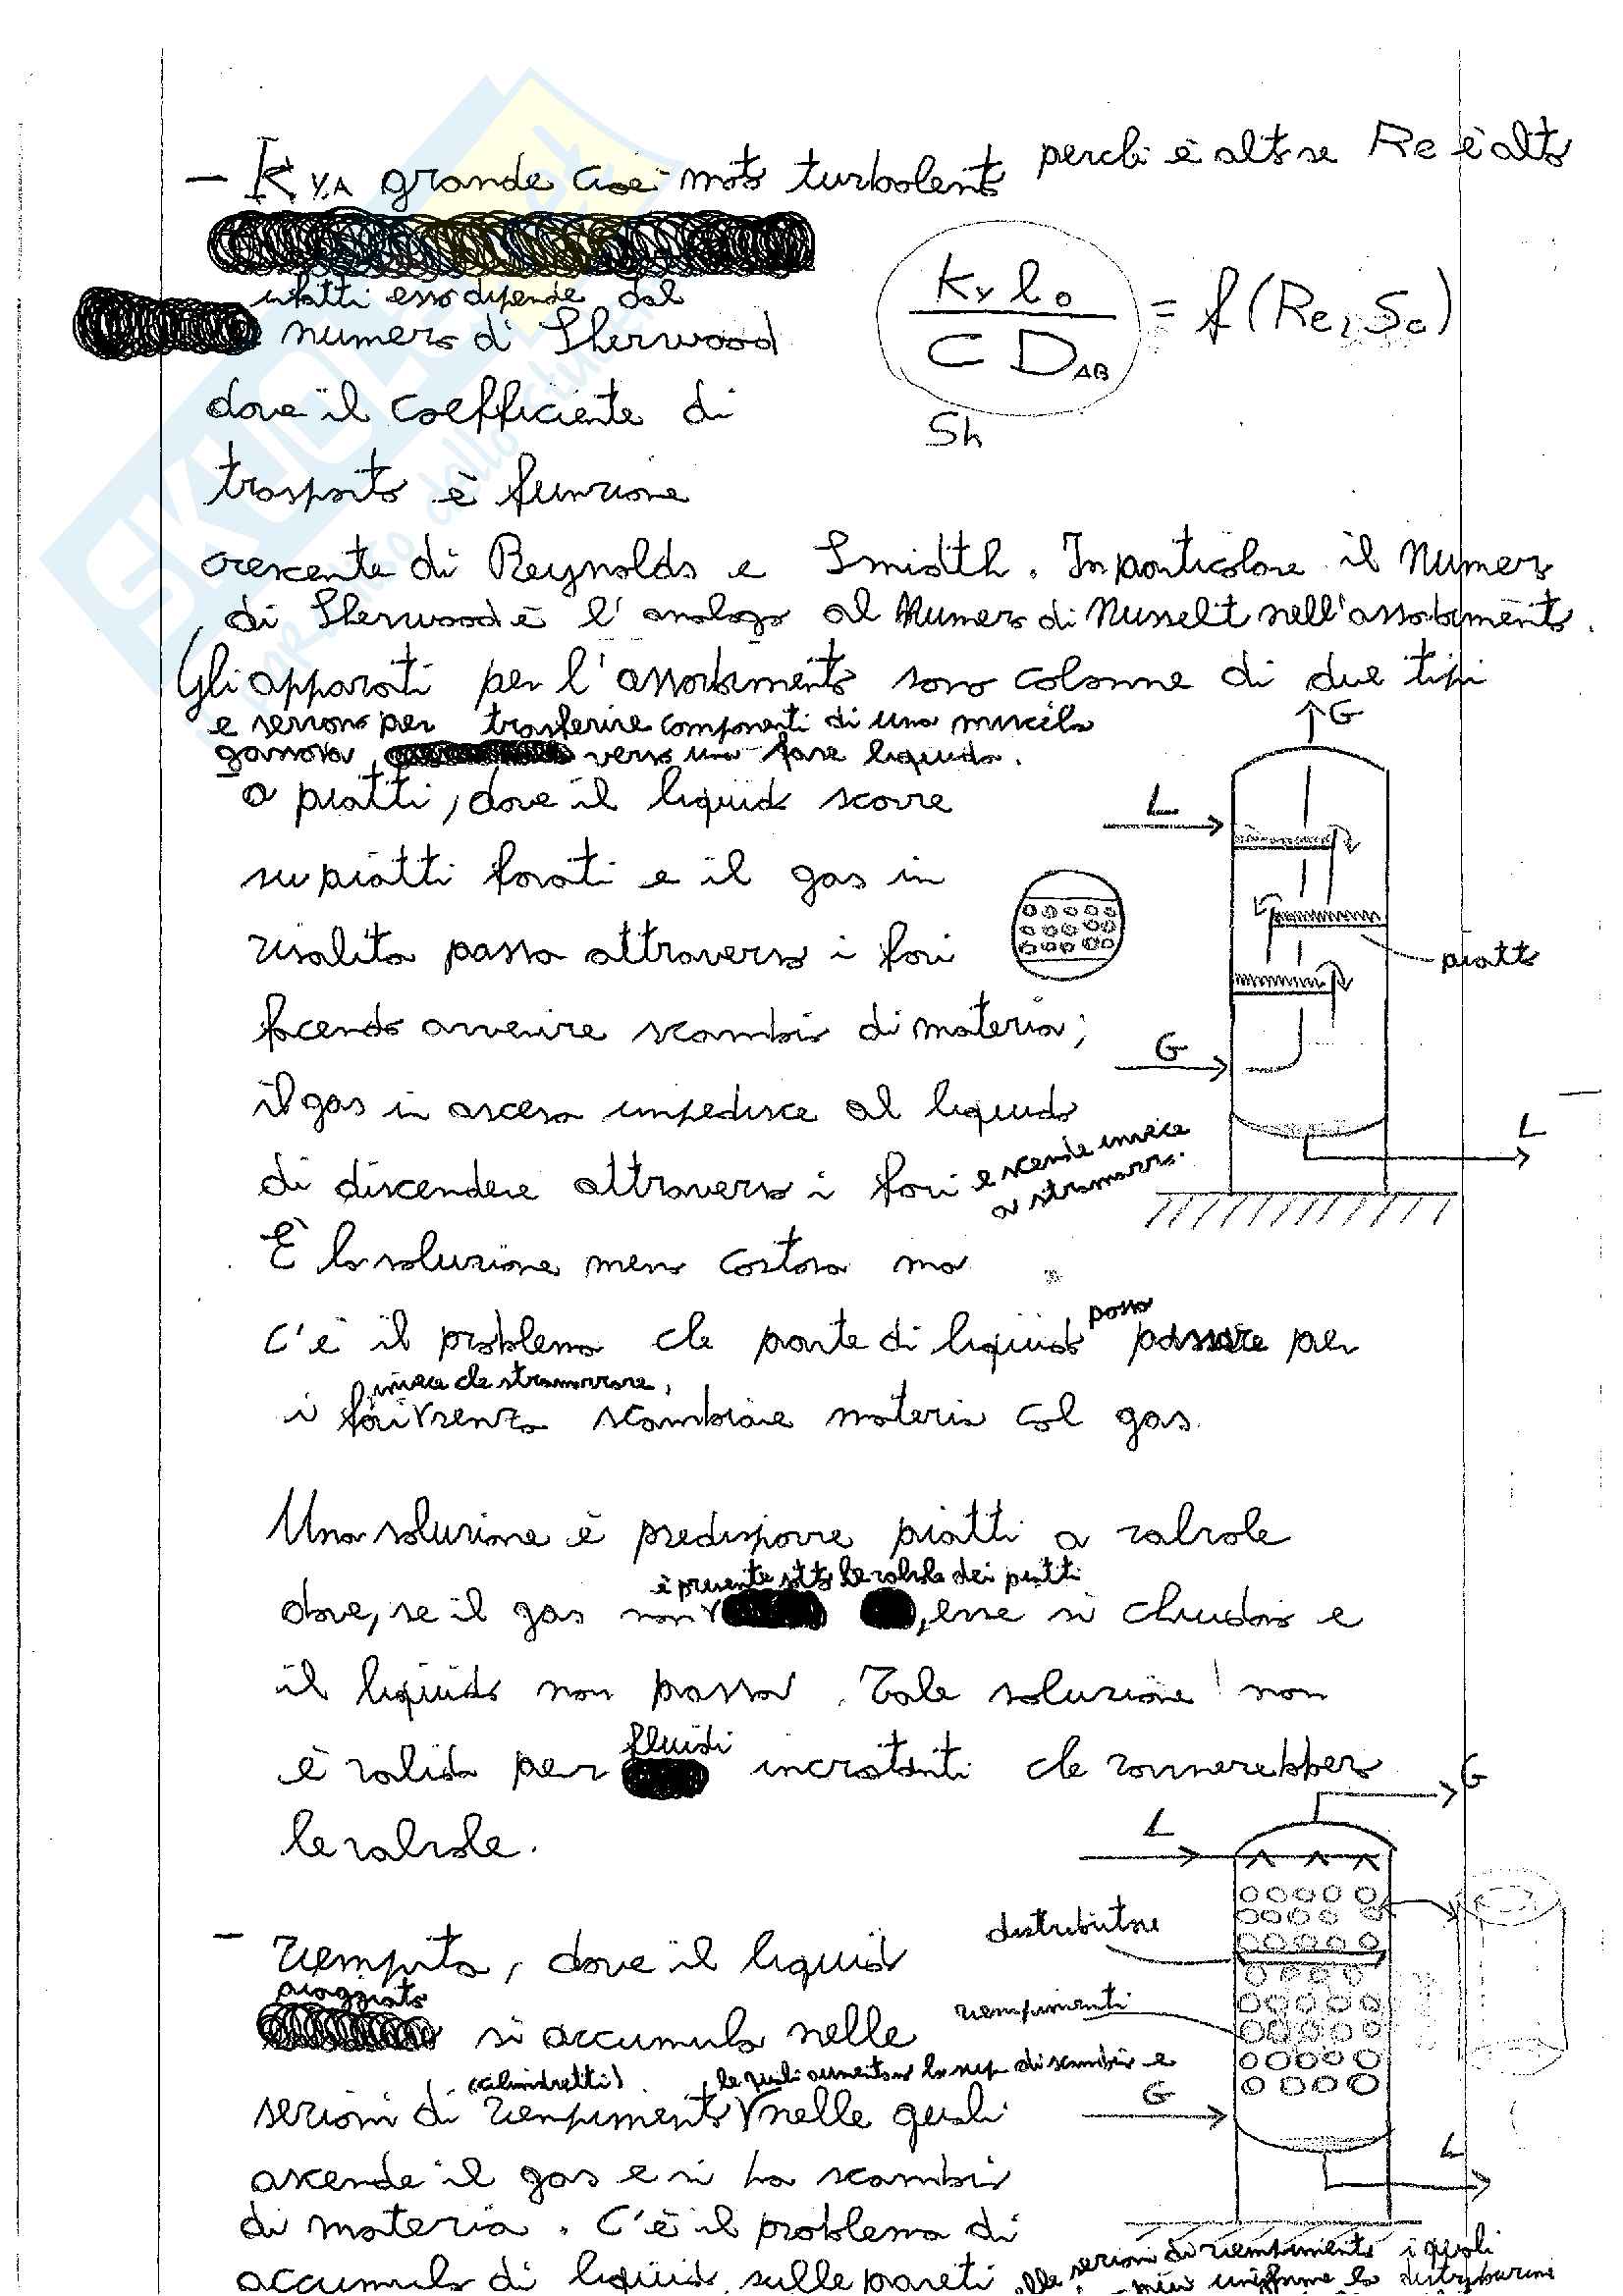 - K y,A grande cioè moto turbolento perché è alto se Re è alto
infatti esso dipende dal
numero di Sherwood
Ky lo / C DAB = f (Re, Sc)
Sh
dove il coefficiente di
trasporto è funzione
crescente di Reynolds e Smidth. In particolare il Numero
di Sherwood è l'analogo al Numero di Nusselt nell'assorbimento.
Gli apparati per l'assorbimento sono colonne di due tipi
e servono per trasferire componenti di una miscela
gassosa verso una fase liquida.
G
a piatti, dove il liquido scorre
L
su piatti forati e il gas in
risalita passa attraverso i fori
piatto
facendo avvenire scambio di materia;
G
il gas in ascesa impedisce al liquido
L
di discendere attraverso i fori e scende invece
a stramazzo.
È la soluzione meno costosa ma
c'è il problema che parte di liquido possa passare per
i fori invece che stramazzare, senza scambiare materia col gas.
Una soluzione è predisporre piatti a valvole
dove, se il gas non è presente sotto le valvole dei piatti, esse si chiudono e
il liquido non passa. Tale soluzione non
è valida per fluidi incrostanti che rovinerebbero
G
le valvole.
L
distributore
- riempita, dove il liquido
piaggiato
si accumula nelle
riempimenti
(cilindretti) le quali aumentano la sup. di scambio e
G
sezioni di riempimento nelle quali
L
ascende il gas e si ha scambio
di materia. C'è il problema di
accumulo di liquido sulle pareti
sezioni di riempimento i quali
uniforme la distribuzione
SKUOLA.net